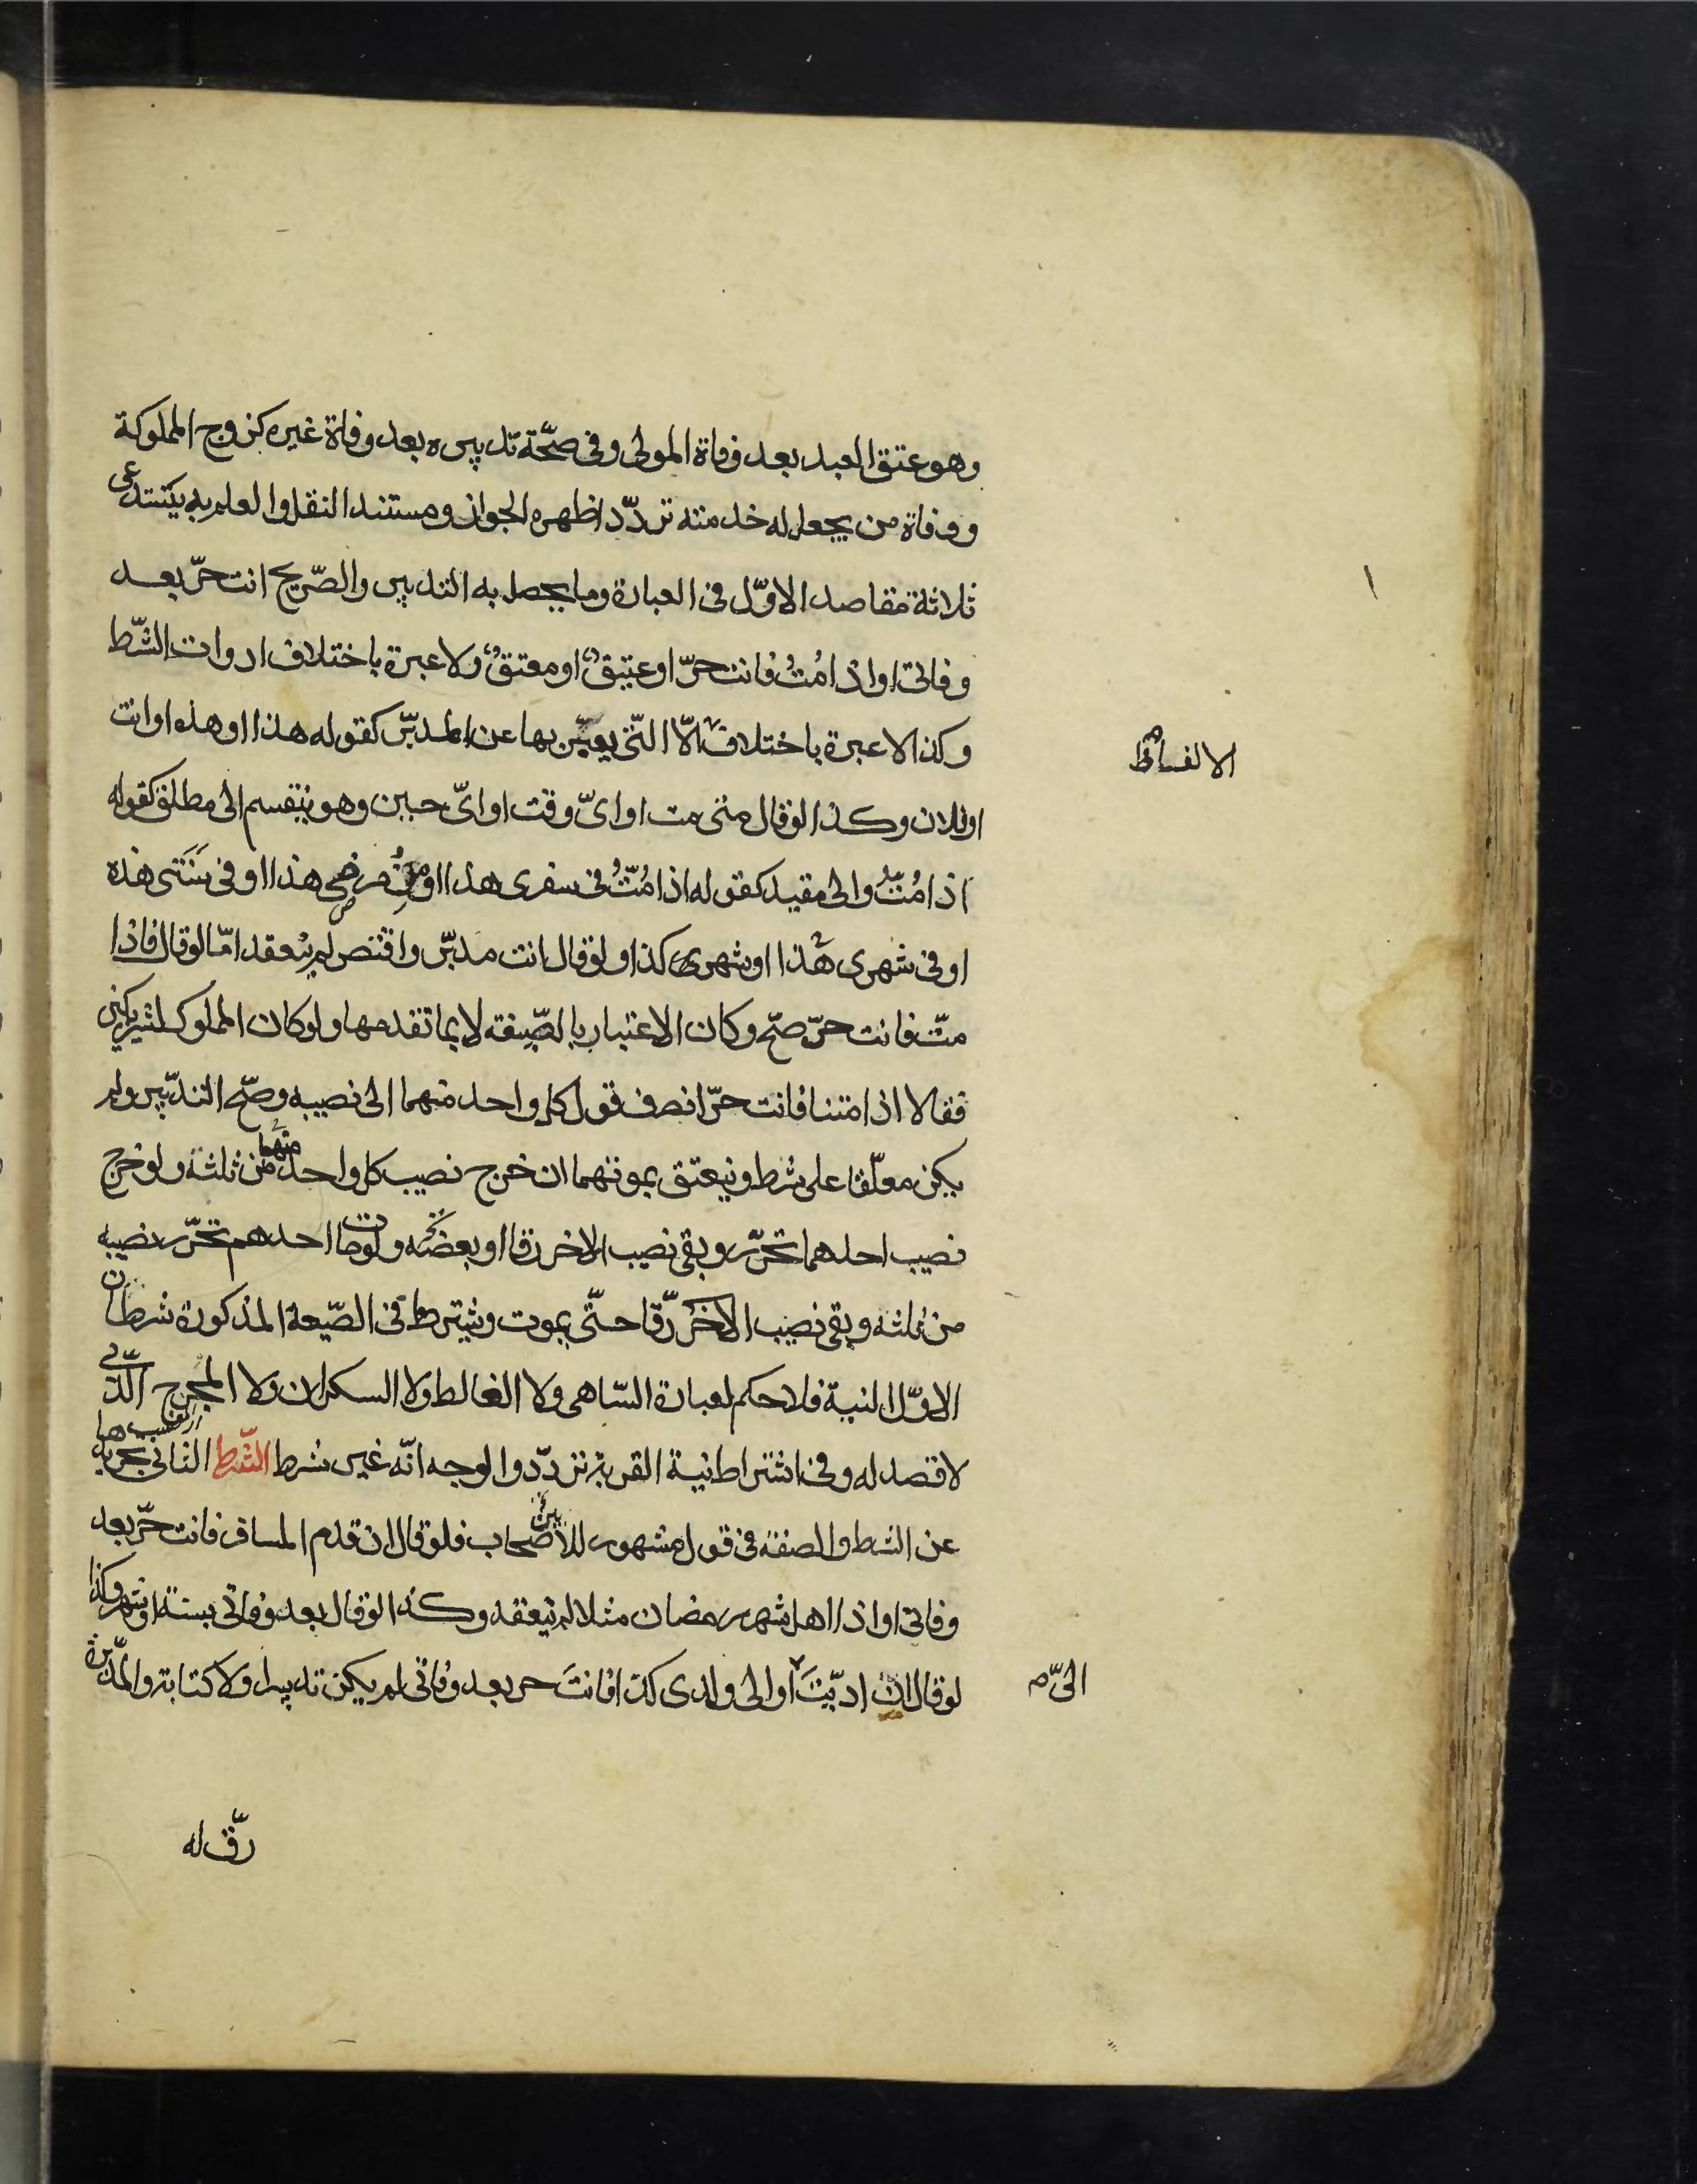 وهو عتق العبد بعد وفاة المولى وفى صحّة تدبيره بعد وفاة غيره كزوج المملوكة
ووفاة من يجعل له خدمته تردّد اظهره الجواز ومستند النقل والعلم به يستدعى
ثلاثة مقاصد الاوّل فى العبارة وما يحصل به التدبير والصّريح انت حرّ بعد
وفاتى او اذا مُتُ فانت حرّ او عتيقٌ او معتقٌ ولا عبرة باختلاف ادوات الشّرط
وكذا لا عبرة باختلاف الّا الّتى يعيّن بها عن المدبّر كقوله هذا او هذه او انت
الالفاظ
او فلان وكذا لو قال متى مت او اىّ وقت او اىّ حين وهو ينقسم الى مطلق كقوله
اذا مُتُّ والى مقيد كقوله اذا مُتُّ فى سفرى هذا او من مرضى هذا او فى سَنَتى هذه
او فى شهرى هذا او شهرى كذا ولو قال انت مدبّر واقتصر لم ينعقد امّا لو قال فاذا
متّ فانت حرّ صحّ وكان الاعتبار بالصّيغة لا بما تقدمها ولو كان المملوك لشريكين
فقالا اذا متنا فانت حرّ انصرف قول كل واحد منهما الى نصيبه وصحّ التدبير ولم
يكن معلّقا على شرط وينعتق بموتهما ان خرج نصيب كل واحد منهما من ثلثه ولو خرج
نصيب احدهما تحرّر وبقى نصيب الاخر رقا او بعضه ولو مات احدهم تحرّر نصيبه
من ثلثه وبقى نصيب الاخر رّقا حتّى يموت ويشترط فى الصّيعة المذكورة شرطان
الاوّل النية فلا حكم لعبارة السّاهى ولا الغالط ولا السكران ولا المحرج الّذى
لا قصد له وفى اشتراط نية القربة تردّد والوجه انّه غير شرط الشّرط الثانى تجريدها
عن الشرط والصفة فى قول مشهور بين للاصحاب فلو قال ان قدم المسافر فانت حرّ بعد
وفاتى او اذا اهل شهر رمضان مثلا لم ينعقد وكذا لو قال بعد وفاتى بسنة او شهر وكذا
لو قال ان ادّيتَ او الى ولدى كذا فانتَ حر بعد وفاتى لم يكن تدبيرا ولا كتابة والمدّبرة
الىّ
رّق له